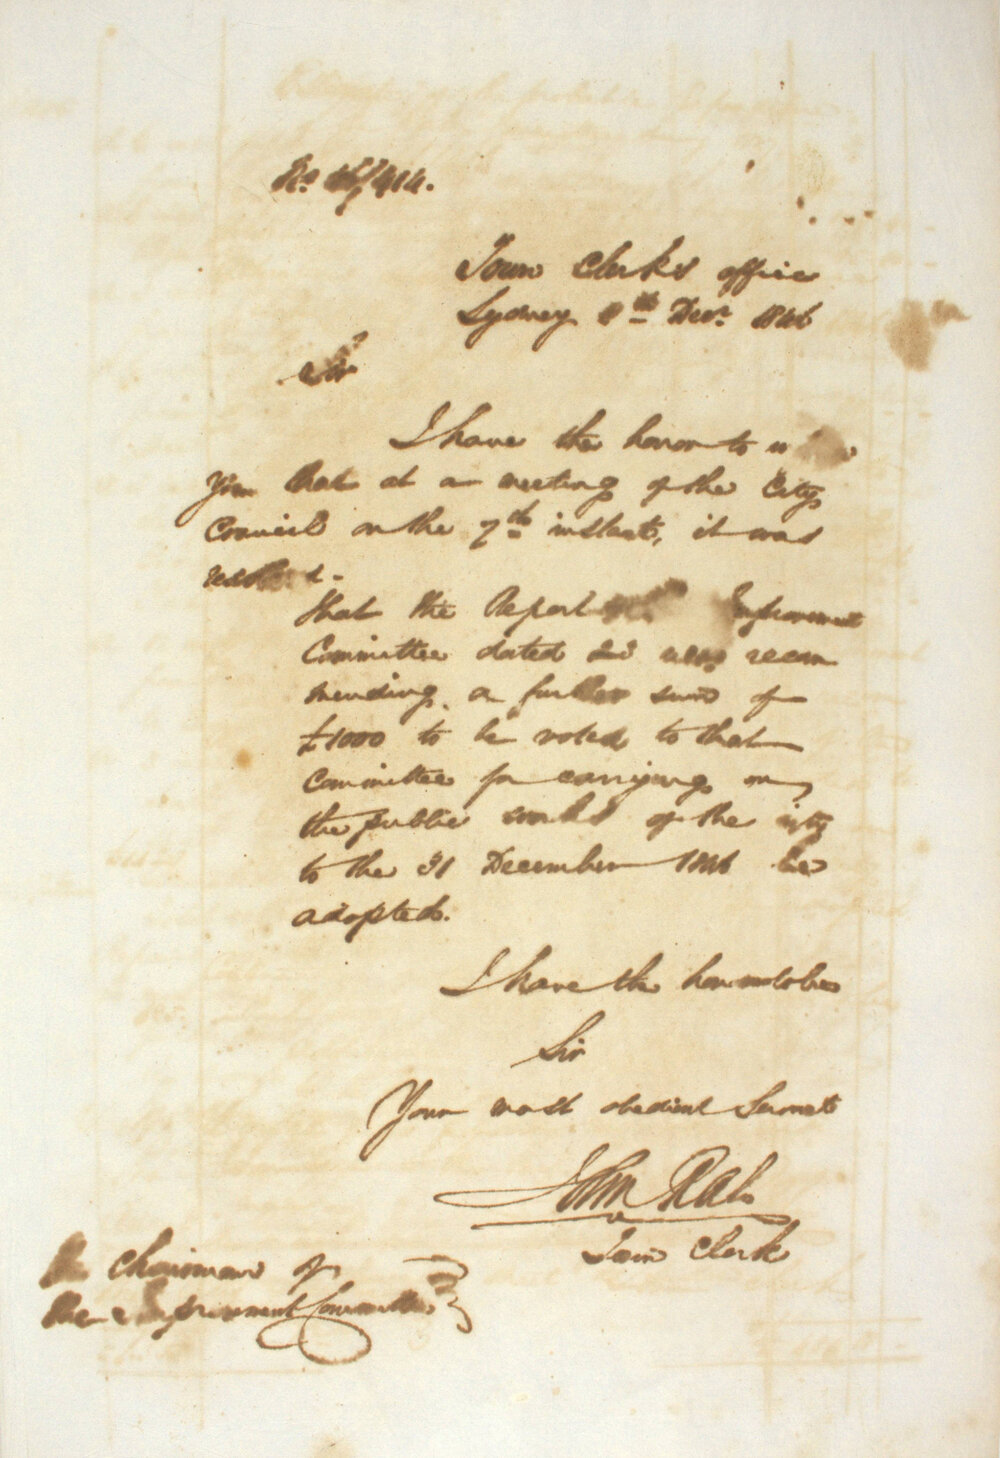 No 46/414.
Town Clerks office
Sydney 8th Decr. 1846
Sir
I have the honor to
you that at a meeting of the City
Council on the 7th instant, it was

that the Report Improvement
Committee dated recom
mending a further sum of
£1000 to be voted to that
Committee for carrying on
the public works of the City
to the 31 December 1846 be
adopted.
I have the honor to be
Sir
Your most obedient Servant
John Rae
Town Clerk
The Chairman of
the Improvement Committee